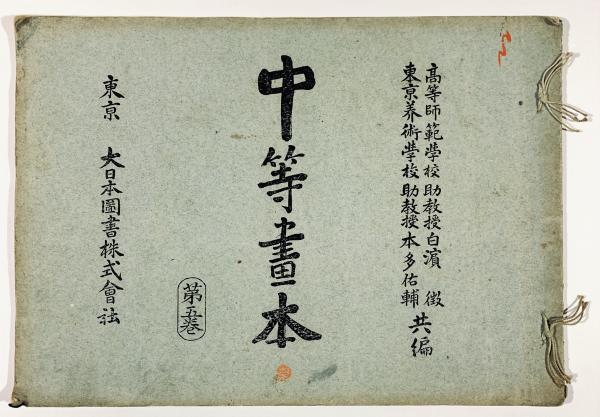 高等師範學校助教授白濱 徴
東京美術學校助教授本多佑輔
共編
中等畫本
第五巻
東京 大日本圖書株式會社